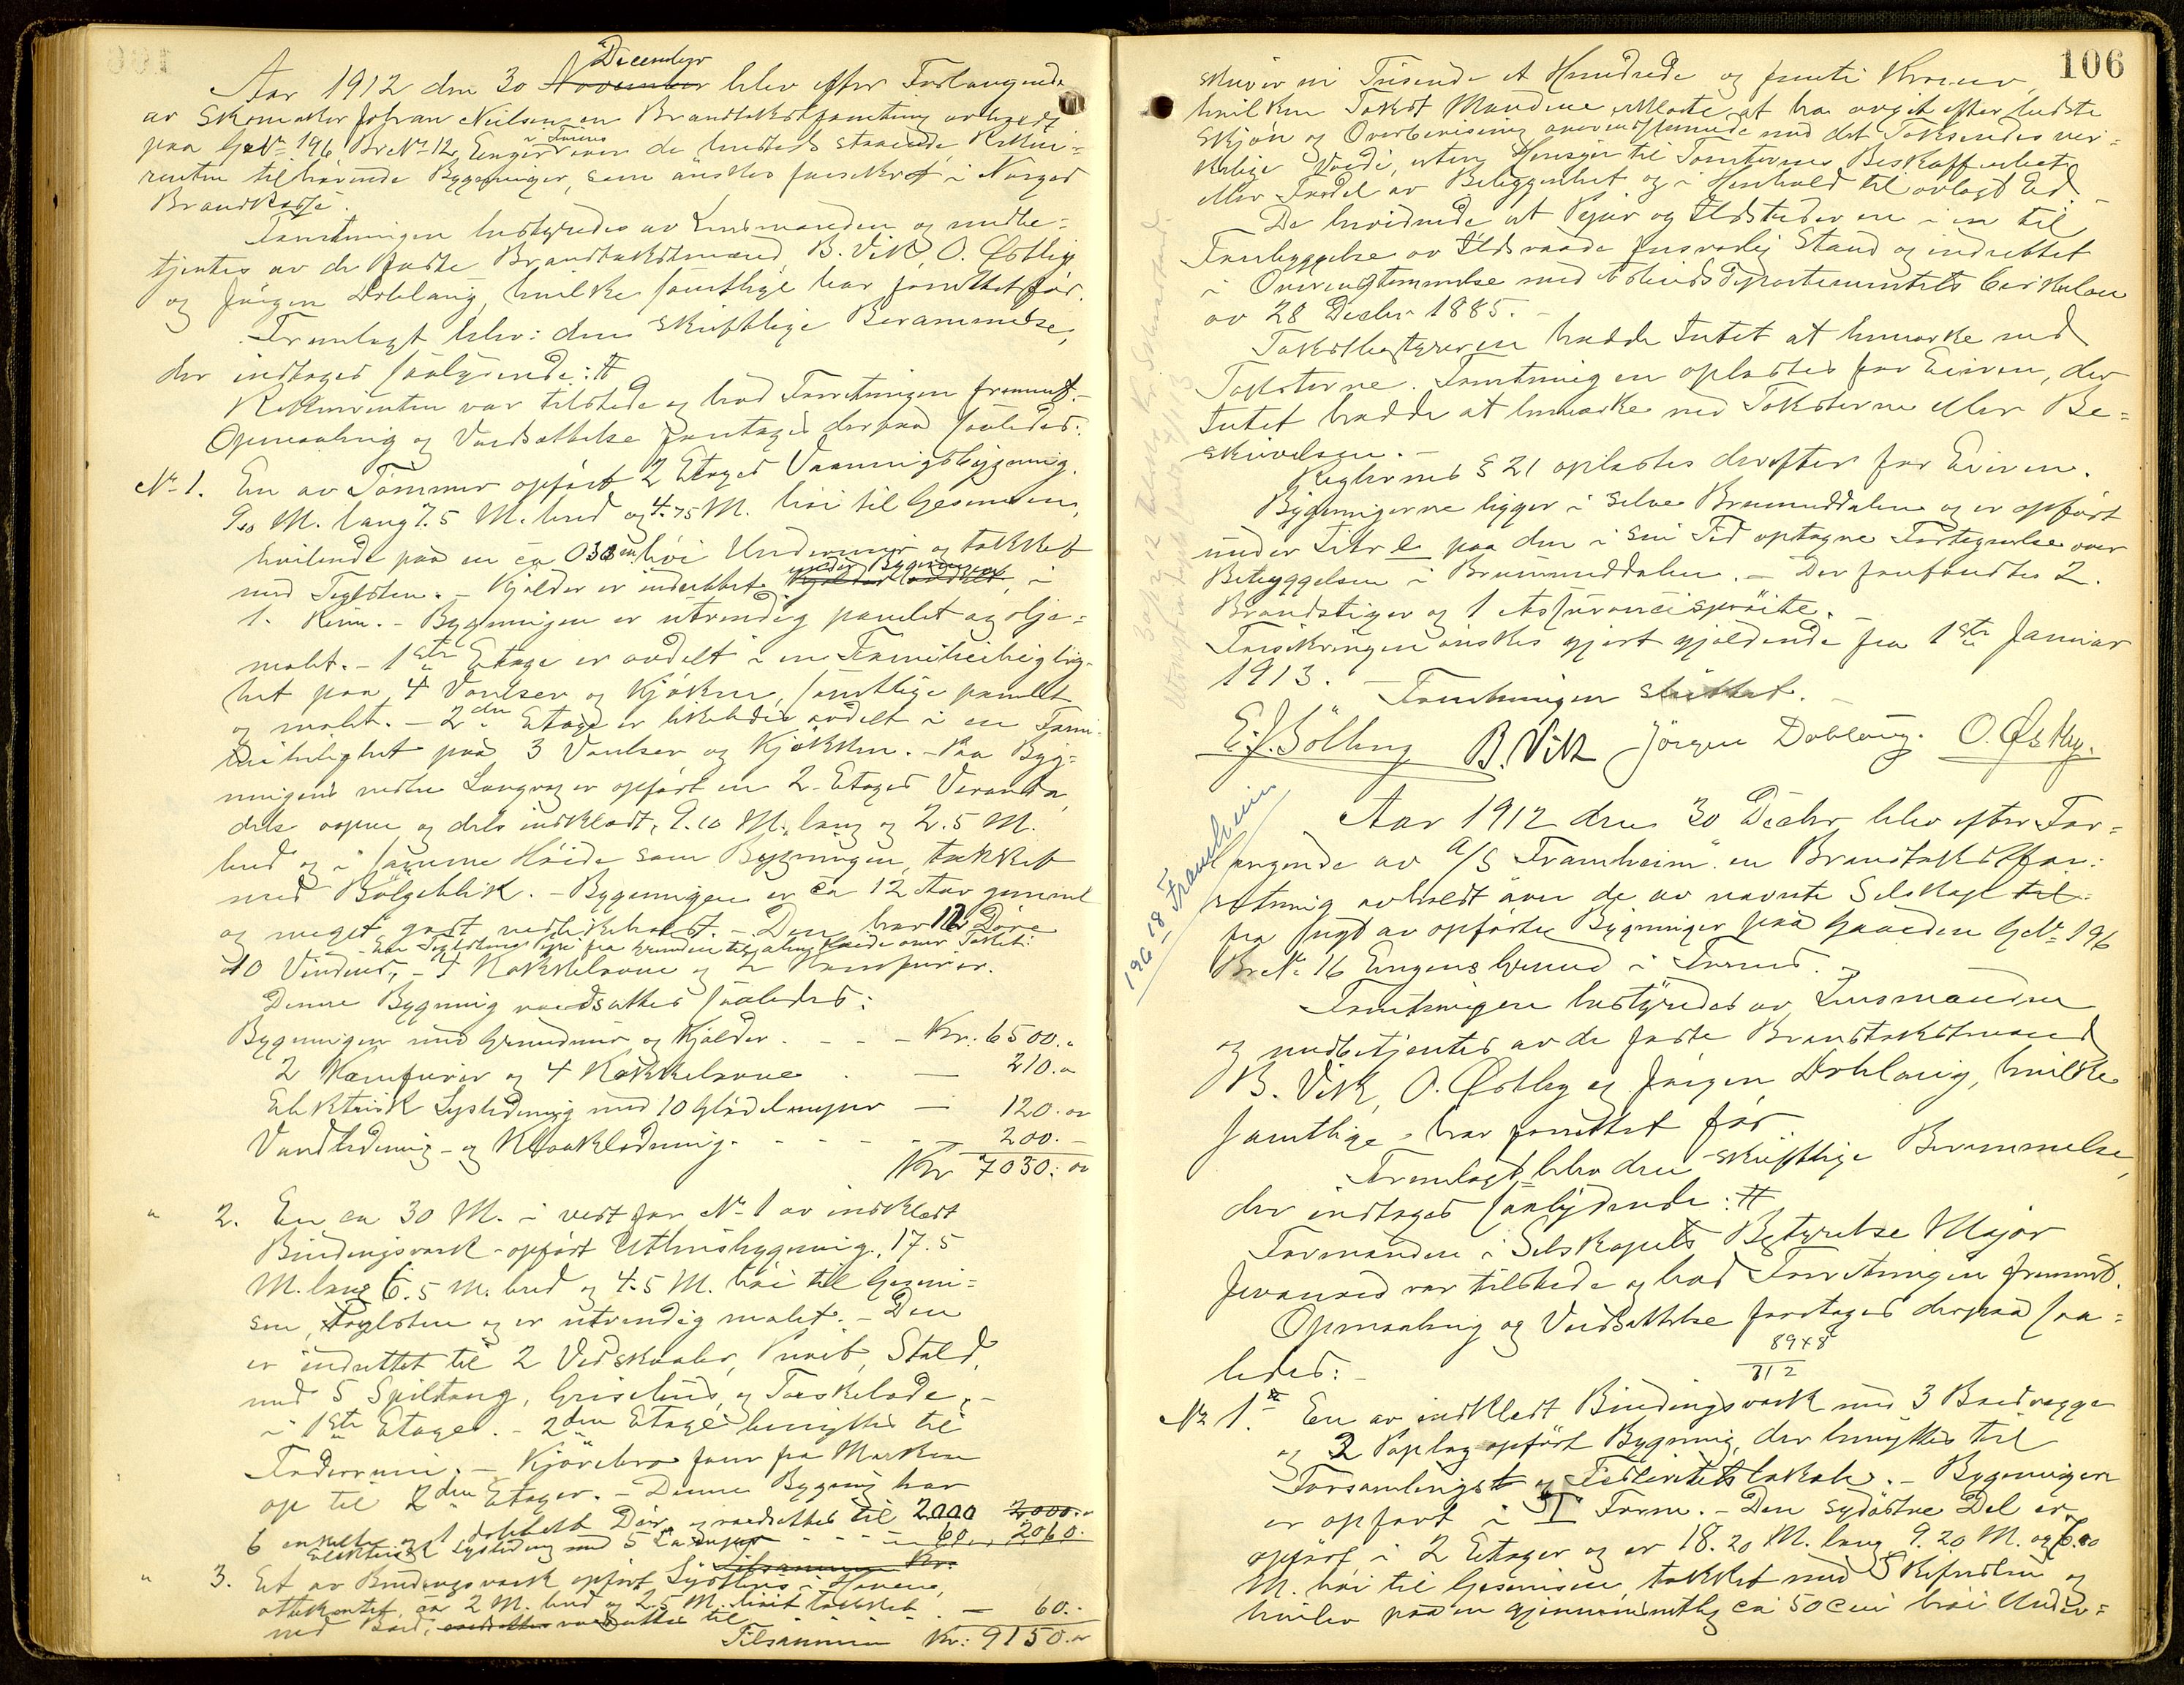 December
Aar 1912 den 30 November blev efter Forlangende
av Skomaker Johan Nielsen en Brandtakstforretning avholdt
i Furnes
paa GNo 196 BrNo 12 Engen over de hersteds staaende, Rekvi=
renten tilhørende Bygninger, som ønskes forsikret i Norges
Brandkasse.
Forretningen bestyredes av Lensmanden og medbe=
tjentes av de faste Brandtakstmænd B. Vik, O. Østby
og Jørgen Doblaug, hvilke samtlige har forrettet før.
Fremlagt blev: den skriftlige Berammelse,
der indtages saalydende: #
Rekvirenten var tilstede og bad Forretningen fremmet.-
Opmaaling og Værdsættelse foretages derpaa saaledes:
No 1. En av Tømmer opført 2 Etages Vaaningsbygning.
9.10 M. lang 7.5 M. bred og 4.75 M. høi til Gesimsen,
hvilende paa en ca 0.30 cm. høi Undermur og tækket
med Teglsten. - Kjælder er indrettet under Bygningen i
1. Rum. - Bygningen er utvendig panelet og olje=
malt. - 1ste Etage er avdelt i en Familieleilig-
het paa 4 Værelser og Kjøkken, samtlige panelt
og malt. - 2den Etage er likeledes avdelt i en Fami-
lieleilighet paa 3 Værelser og Kjøkken. - Paa Byg=
ningens nedre Langvæg er opført en 2 Etages Veranda,
dels aapen og dels indklædt, 9.10 M. lang og 2.5 M.
bred og i samme Høide som Bygningen, tækket
med Bølgeblik. - Bygningen er ca 12 Aar gammel
og meget godt vedlikeholdt. - Den har 12 Døre
En Teglstens Pipe fra Grunden til aling Høide over Taket.
10 Vinduer, - 4 Kakkelovne og 2 Komfurer.
Denne Bygning værdsættes saaledes:
Bygningen med Grundmur og Kjælder - - - Kr. 6500.
2 Komfurer og 4 Kakkelovne — 210.
Elektrisk Lysledning med 10 Glødelamper — 120.
Vandledning - og Kloakledning. - - - - 200.-
Kr 7030.
" 2. En ca 30 M. i vest for No 1 av indklædt
Bindingsverk - opført Uthusbygning, 17.5
M. lang 6.5 M. bred og 4.5 M. høi til Gesim=
sen, Teglsten og er utvendig malet. - Den
er indrettet til 2 Vedskaaler, Privet, Stald,
med 5 Spiltaug, Grisehus, og Tørskelade, -
i 1ste Etage. - 2den Etage benyttes til
Foderrum. - Kjørebro fører fra Marken
op til 2den Etager. - Denne Bygning har
6 enkelte og 1 dobbelt Dør, og værdsættes til 2000 2000.
Elektrisk Lysledning med 5 Lamper - - - - 60. 2060.
Tilsammen Kr.
" 3. Et av Bindingsverk opført Lysthus i Haven,
ottekantet, ca 2 M. bred og 2.5 M. høit tækket
med Bord, værdsættes til - - - - — 60.-
Tilsammen Kr: 9150.
106
skriver ni Tusende et Hundrede og femti Kroner,
hvilken Takst Mændene erklærte at ha avgit efter bedste
Skjøn og Overbevisning overensstemmende med det Takseredes vir=
kelige Værdi, uten Hensyn til Tomternes Beskaffenhet
eller Fordel av Beliggenhet og i Henhold til avlagt Ed.
De bevidnede at Piper og Ildsteder er i en til
Forebyggelse av Ildsvaade forsvarlig Stand og indrettet
i Overensstemmelse med Arbeidsdepartementets Cirkulær
av 28 Decbr 1885.-
Takstbestyreren hadde Intet at bemærke ved
Taksterne. Forretningen oplæstes for Eieren, der
Intet hadde at bemærke ved Taksterne eller Be=
skrivelsen.-
Reglernes § 21 oplæstes derefter for Eieren.
Bygningerne ligger i selve Brummunddalen og er opført
under Litr e paa den i sin Tid optagne Fortegnelse over
Bebyggelsen i Brummunddalen. - Der forefandtes 2.
Brandstiger og 1 Assurancesprøite.
Forsikringen ønskes gjort gjældende fra 1ste Januar
1913. - Forretningen sluttet.-
E. J. Sölling B. Vik Jörgen Doblaug. O. Østby.
196/18 Framheim
Aar 1912 den 30 Decbr blev efter For=
langende av A/S "Framheim" en Brandtakstfor=
retning avholdt over de av nævnte Selskap til=
BrNo 16 Engens Grund i Furnes.
Forretningen bestyredes av Lensmanden
og medbetjentes av de faste Brandtakstmænd
B. Vik, O. Østby og Jørgen Doblaug, hvilke
samtlige har forrettet før.
Fremlagt blev den skriftlige Berammelse,
der indtages saalydende: #
Formanden i Selskapets Bestyrelse Major
Jevanord var tilstede og bad Forretningen fremmet.
Opmaaling og Værdsættelse foretages derpaa saa=
ledes:-
8948
312
No 1. En av indklædt Bindingsverk med 3 Bordvægge
og 2 Paplag opført Bygning, der benyttes til
Forsamlings og Festivitetslokale. - Bygningen
er opført i T Form. - Den sydøstre Del er
opført i 2 Etager og er 18.20 M. lang 9.20 M. og 6.00
M. høi til Gesimsen tækket med Skifersten og
hviler paa en gjennemsnitlig ca 50 Cm høi Under=